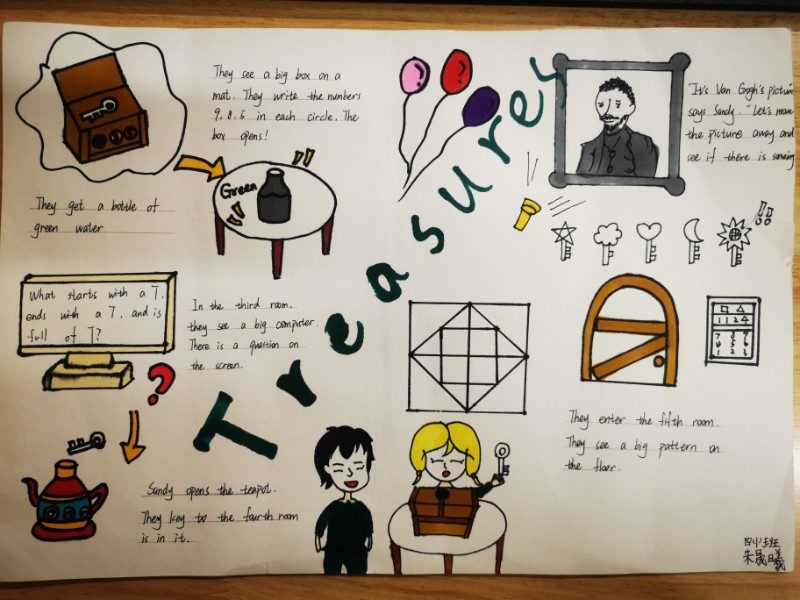 They see a big box on a
mat. They write the numbers
9.8.5 in each circle. The
box opens!
They get a bottle of
green water
Green
Treasures
"It's Van Gogh's picture"
says Sandy. "Let's move
the picture away and
see if there is
!!
What starts with a T.
ends with a T, and is
full of T?
?
In the third room.
they see a big computer.
There is a question on
the screen.
Sandy opens the teapot.
They key to the fourth room
is in it.
1124
They enter the fifth room
They see a big pattern on
the floor.
朱晟曦